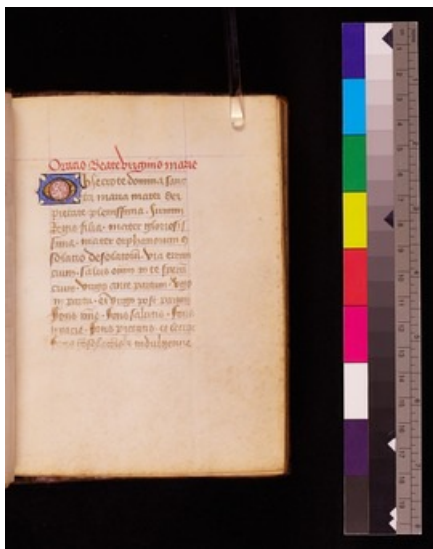 Oratio Beate virginis marie
Obsecro te domina sanc
ta maria mater dei
pietate plenissima. summi
Regis filia. mater gloriosis
sima. mater orphanorum
solatio desolatorū. via erran
cium. salus oim in te spera
cium. virgo ante partum. virgo
in partu. et virgo post partum
fons mīe. fons salutis. fons
gracie. fons pietatis. et leticie
fons cōsolationis et indulgencie